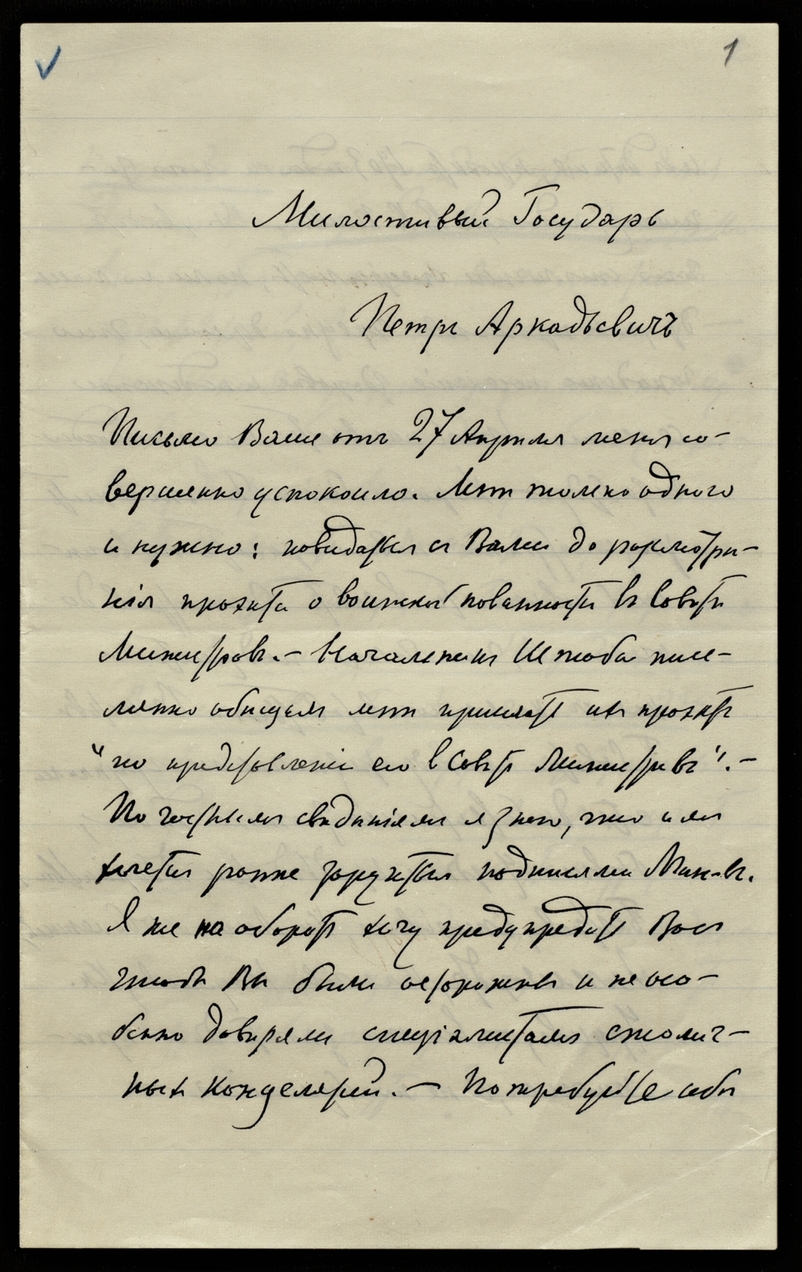 1
Милостивый Государь
Петръ Аркадьевичъ
Письмо Ваше отъ 27 Апрѣля меня со-
вершенно успокоило. Мнѣ только одного
и нужно: повидаться съ Вами до разсмотрѣ-
нія проэкта о воинской повинности въ Совѣтѣ
Министровъ. — Начальникъ Штаба пись-
менно обѣщалъ мнѣ прислать ихъ проэктъ
"по представленіи его в Совѣтъ Министровъ". —
По частнымъ свѣдѣніямъ я знаю, что имъ
хочется ранѣе заручиться подписями Мин-въ.
Я же на оборотъ хочу предупредить Васъ
чтобъ Вы были осторожны и не осо-
бенно довѣряли спеціалистамъ столич-
ныхъ канцелярій. — Потребуйте себѣ